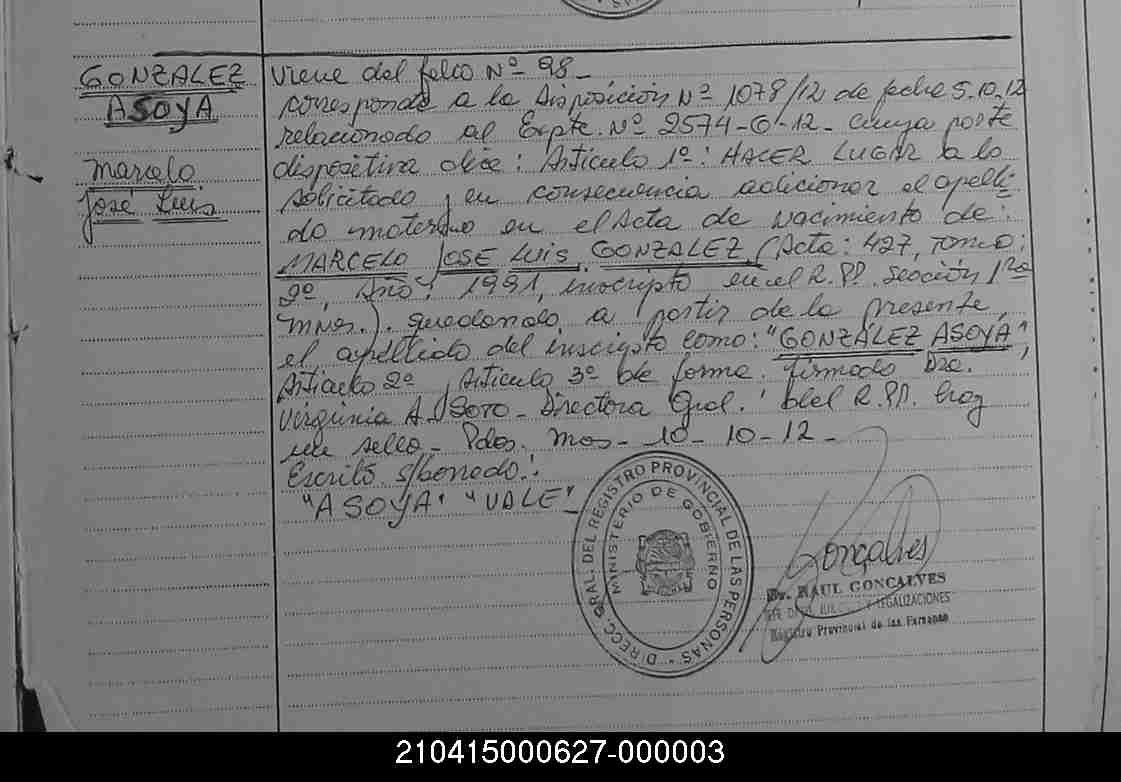 GONZALEZ
ASOYA
Marcelo
José Luis
Viene del folio Nº 98_
corresponde a la Disposición Nº 1078/12 de fecha 5.10.12
relacionado al Expte. Nº 2574-G-12- cuya parte
dispositiva dice: Artículo 1º: HACER LUGAR a lo
solicitado y en consecuencia adicionar el apelli-
do materno en el Acta de Nacimiento de:
MARCELO JOSE LUIS GONZALEZ (Acta: 427, Tomo:
2º, Año: 1991, inscripto en el R.PP. Sección 1ra
Mnes.). quedando, a partir de la presente,
el apellido del inscripto como: "GONZALEZ ASOYA",
Artículo 2º, Artículo 3º de forma. firmado Dra.
Virginia A. SOTO- Directora Gral. del R.PP. hay
un sello- Pdas. Mnes- 10-10-12-
Escrito s/borrado:
"ASOYA" "VALE"
DIRECC. GRAL. DEL REGISTRO PROVINCIAL DE LAS PERSONAS
MINISTERIO DE GOBIERNO
Goncalves
RAUL GONCALVES
LEGALIZACIONES
Registro Provincial de las Personas
210415000627-000003